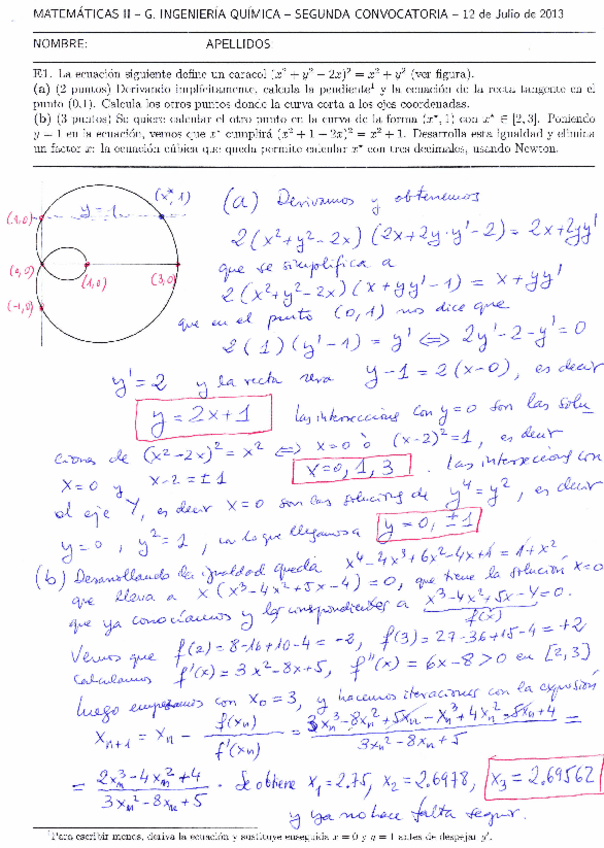 MATEMÁTICAS II – G. INGENIERÍA QUÍMICA – SEGUNDA CONVOCATORIA – 12 de Julio de 2013
NOMBRE: APELLIDOS
E1. La ecuación siguiente define un caracol (x² + y² − 2x)² = x² + y² (ver figura).
(a) (2 puntos) Derivando implícitamente, calcula la pendiente¹ y la ecuación de la recta tangente en el
punto (0,1). Calcula los otros puntos donde la curva corta a los ejes coordenadas.
(b) (3 puntos) Se quiere calcular el otro punto en la curva de la forma (x*, 1) con x* ∈ [2, 3]. Poniendo
y = 1 en la ecuación, vemos que x* cumplirá (x² + 1 − 2x)² = x² + 1. Desarrolla esta igualdad y elimina
un factor x: la ecuación cúbica que queda permite calcular x* con tres decimales, usando Newton.
(x*, 1)
y=1
(1,0)
(0,0)
(1,0)
(3,0)
(-1,0)
(a) Derivamos y obtenemos
2(x²+y²-2x)(2x+2y·y'-2) = 2x+2yy'
que se simplifica a
2(x²+y²-2x)(x+yy'-1) = x+yy'
que en el punto (0,1) nos dice que
2(1)(y'-1) = y' ⟺ 2y'-2-y'=0
y'=2 y la recta sera y-1=2(x-0), es decir
y=2x+1 Las intersecciones con y=0 son las solu
ciones de (x²-2x)²=x² ⟺ x=0 ò (x-2)²=1, es decir
x=0 y x-2=±1 x=0,1,3 . Las intersecciones con
el eje Y, es decir x=0 son las soluciones de y⁴=y², es decir
y=0, y²=1, con lo que llegamos a y=0, ±1
(b) Desarrollando la igualdad queda x⁴-4x³+6x²-4x+1=1+x²,
que lleva a x(x³-4x²+5x-4)=0, que tiene la solución x=0
que ya conocíamos y las correspondientes a x³-4x²+5x-4=0.
f(x)
Vemos que f(2)=8-16+10-4=-2, f(3)=27-36+15-4=+2
Calculamos f'(x)=3x²-8x+5, f''(x)=6x-8>0 en [2,3]
Luego empezamos con x₀=3, y hacemos iteraciones con la expresión
xₙ₊₁ = xₙ - f(xₙ)/f'(xₙ) = 3xₙ³-8xₙ²+5xₙ-xₙ³+4xₙ²-5xₙ+4 / 3xₙ²-8xₙ+5 =
= 2xₙ³-4xₙ²+4 / 3xₙ²-8xₙ+5 . Se obtiene x₁=2.75, x₂=2.6978, x₃=2.69562
y ya no hace falta seguir.
¹Para escribir menos, deriva la ecuación y sustituye enseguida x = 0 y y = 1 antes de despejar y'.